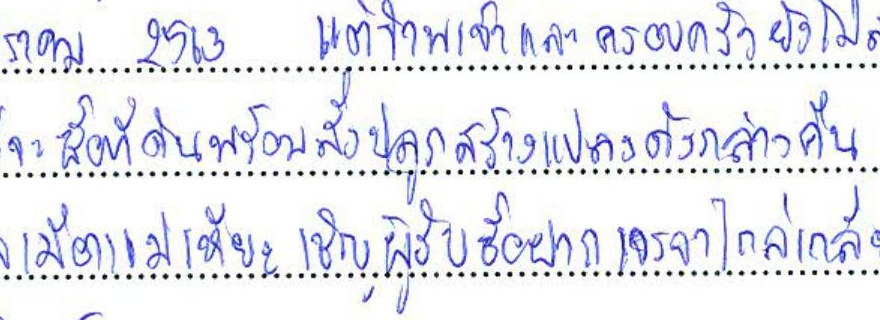 ราคม 2563 แต่ข้าพเจ้าและครอบครัวยังไม่
จะซื้อที่ดินพร้อมสิ่งปลูกสร้างแปลงดังกล่าวคืน
เมืองแม่เหียะ เชิญผู้รับซื้อฝาก เจรจาไกล่เกลี่ย